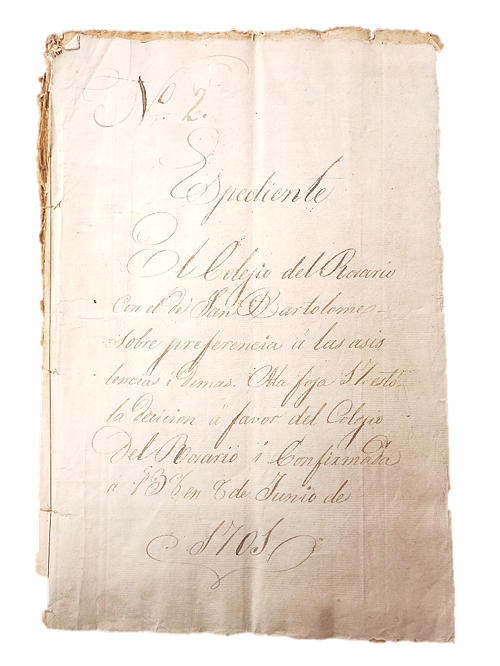 Nº 2.
Espediente
El Colejio del Rosario
Con el de San Bartolome
Sobre preferencia á las asis
tencias i demas. A la foja 57 está
la decicion á favor del Colejio
Del Rosario i Confirmada
a 138 en 8 de Junio de
1701